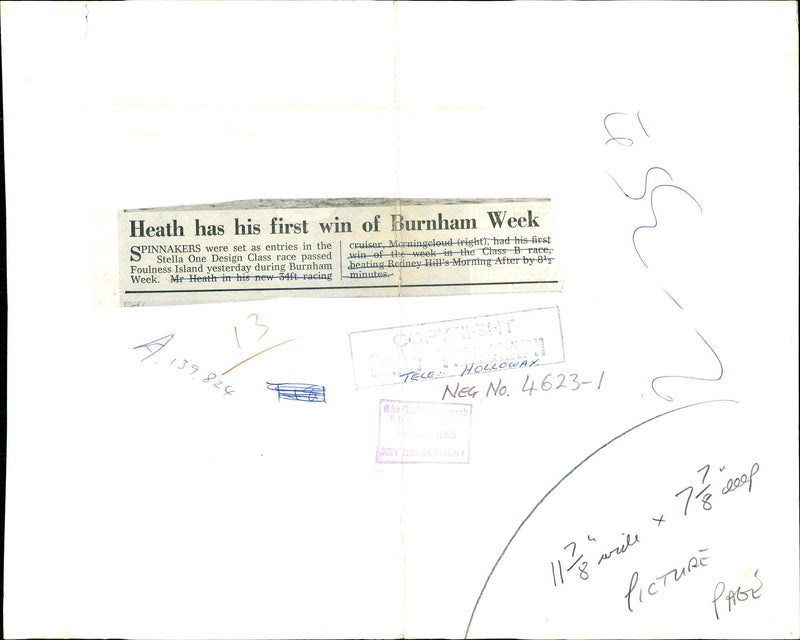 Heath has his first win of Burnham Week
SPINNAKERS were set as entries in the
Stella One Design Class race passed
Foulness Island yesterday during Burnham
Week. Mr Heath in his new 34ft racing
cruiser, Morningcloud (right), had his first
win of the week in the Class B race,
beating Rodney Hill's Morning After by 8½
minutes.
13
A. 139.824
COPYRIGHT
TELE: HOLLOWAY
NEG No. 4623-1
The Daily Telegraph
ART DEPARTMENT
11 7/8" wide x 7 7/8" deep
PICTURE
PAGE